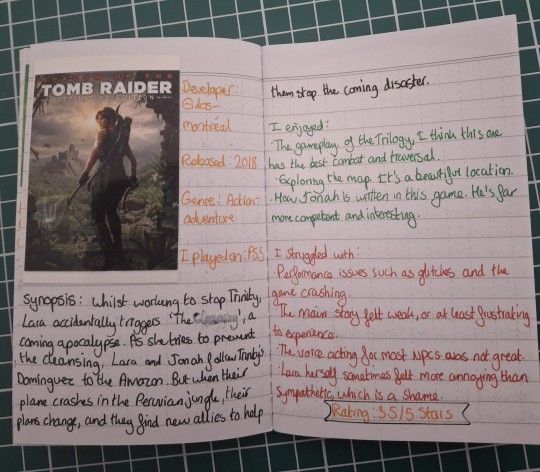 SHADOW OF THE
TOMB RAIDER
DEFINITIVE EDITION
Developer:
Eidos-
montréal
Released: 2018
Genre: Action-
adventure
I played on: PS5
Synopsis: Whilst working to stop Trinity,
Lara accidentally triggers 'The', a
coming apocalypse. As she tries to prevent
the cleansing, Lara and Jonah follow Trinity's
Dominguez to the Amazon. But when their
plane crashes in the Peruvian jungle, their
plans change, and they find new allies to help
them stop the coming disaster.
I enjoyed:
The gameplay of the Trilogy, I think this one
has the best combat and traversal.
· Exploring the map. It's a beautiful location.
· How Jonah is written in this game. He's far
more competent and interesting.
I struggled with:
· Performance issues such as glitches and the
game crashing.
· The main story felt weak, or at least frustrating
to experience.
· The voice acting for most NPCs was not great.
· Lara herself sometimes felt more annoying than
sympathetic, which is a shame.
Rating: 3.5/5 Stars